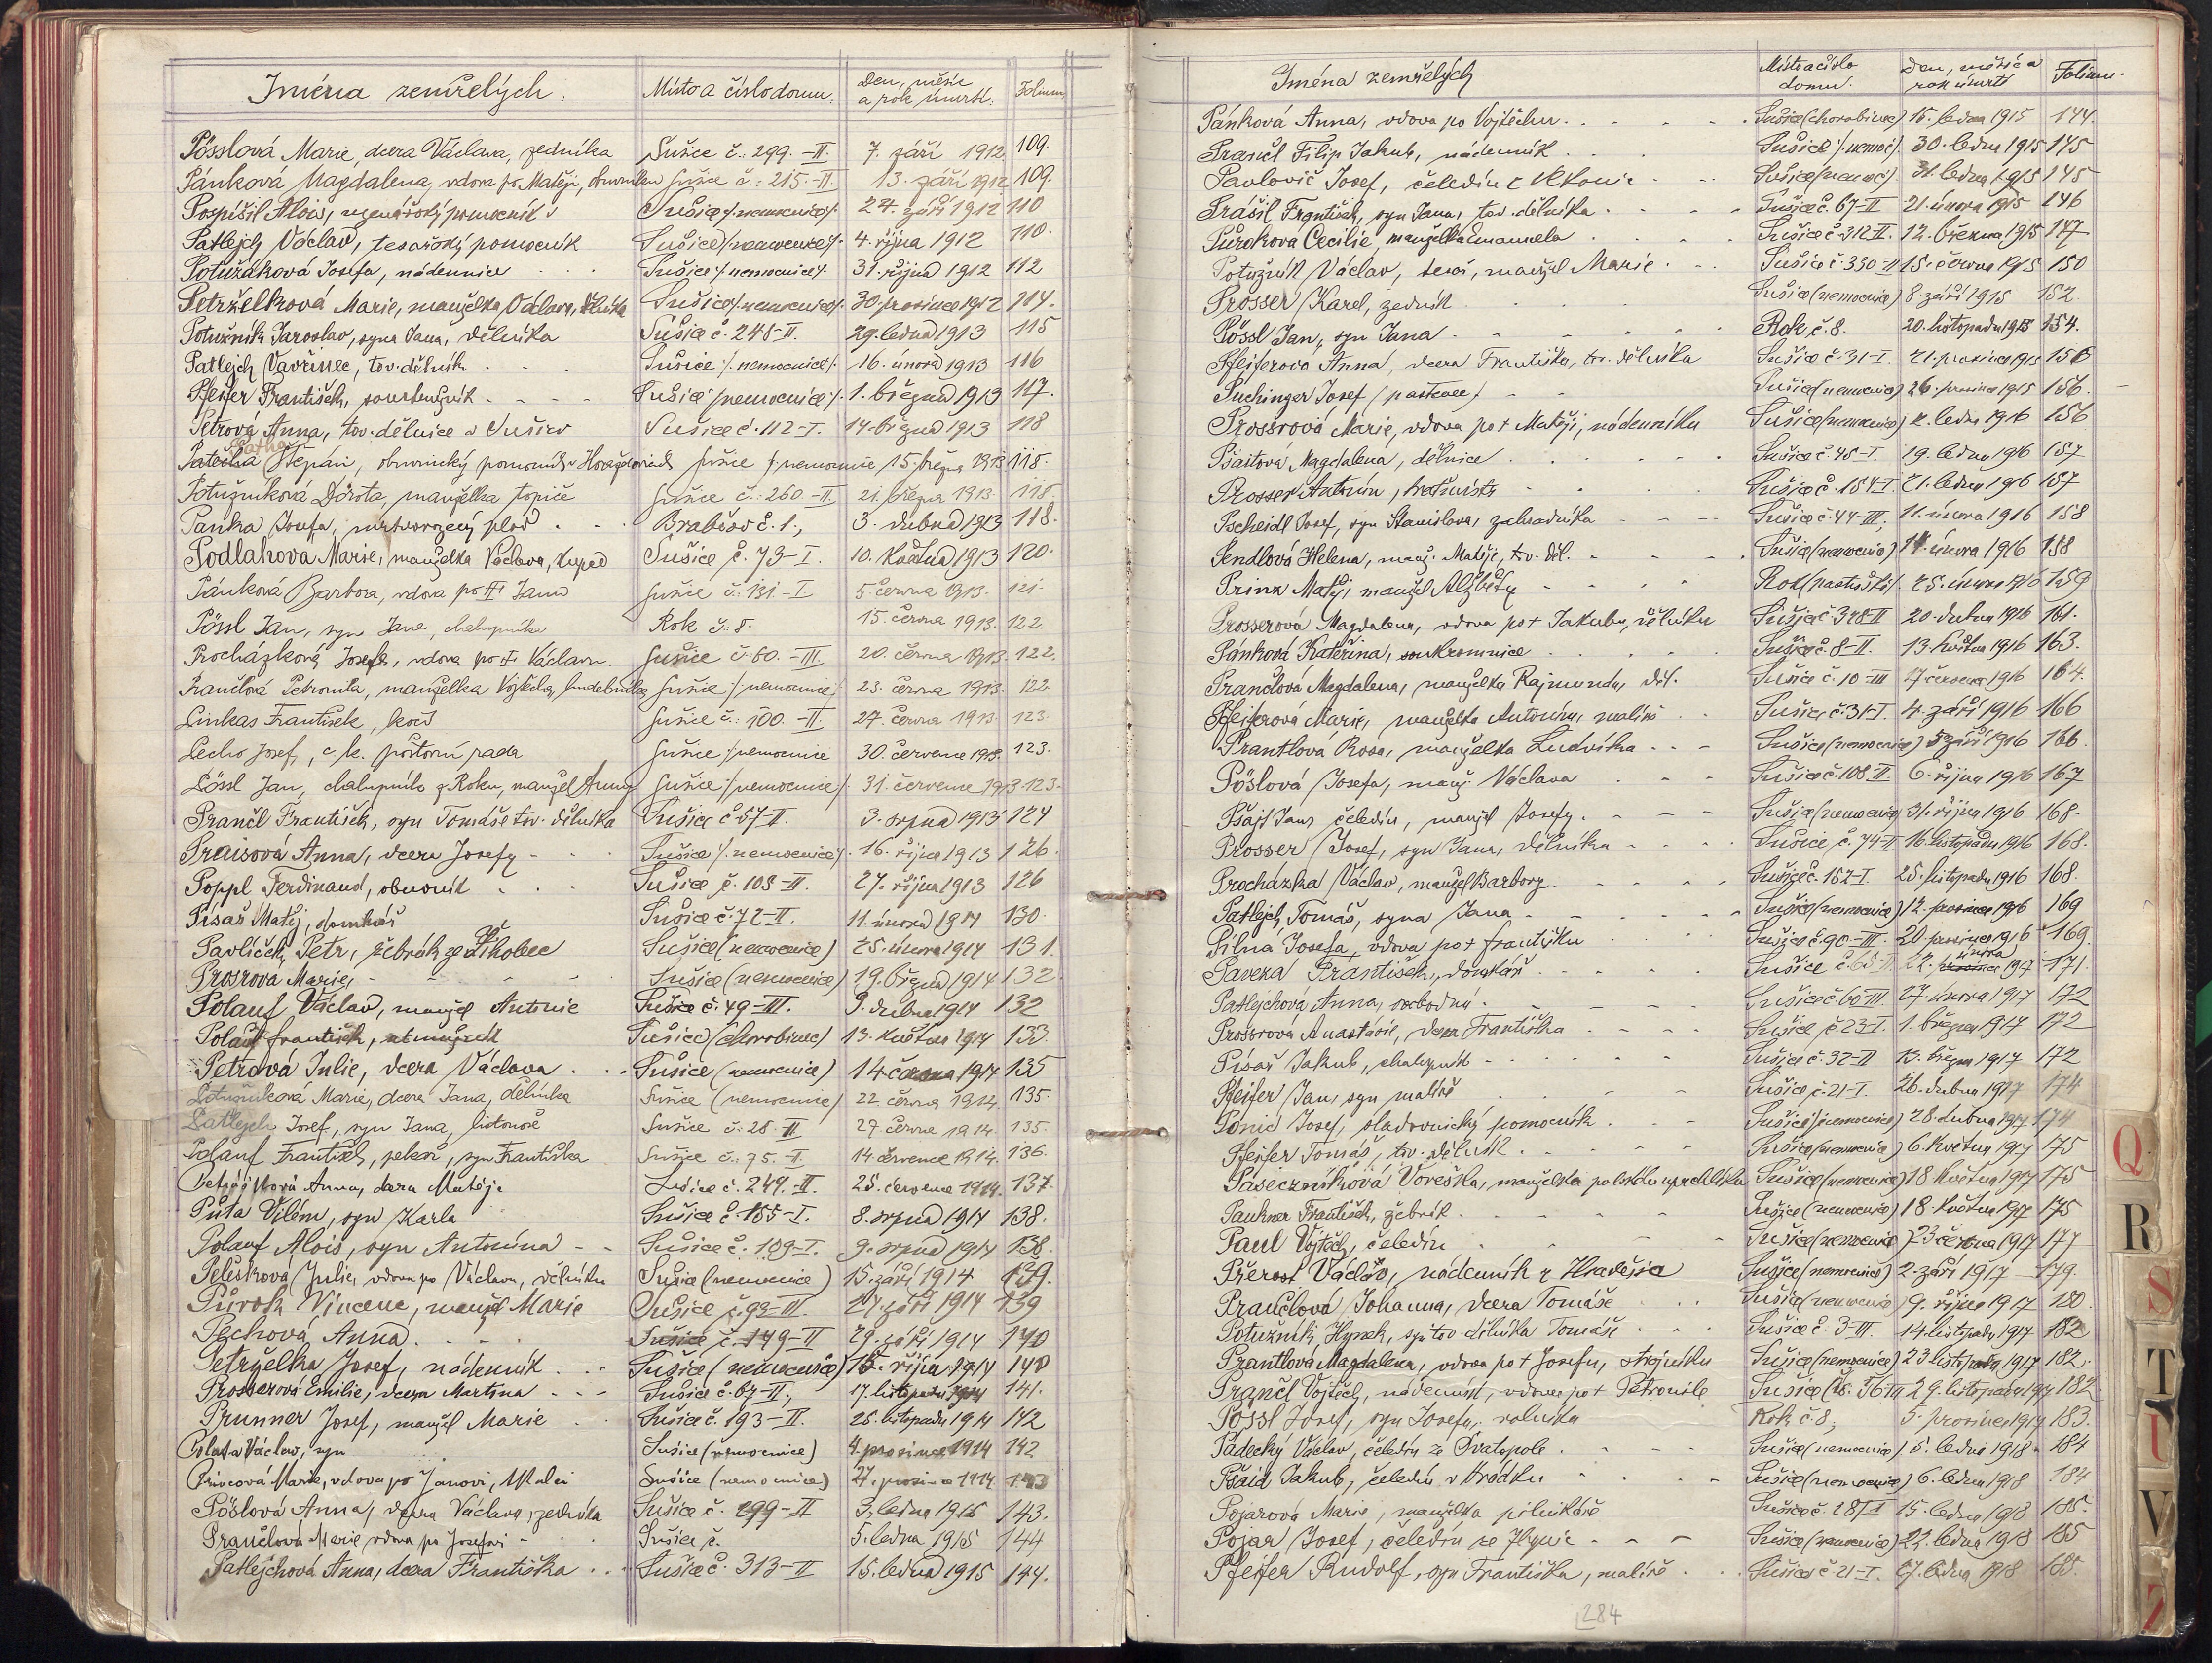 Jména zemřelých. Místo a číslo domu. Den, měsíc a rok úmrtí. Folium.
Pösslová Marie, dcera Václava, zedníka Sušice č.: 299.-II. 7. září 1912 109.
Pánková Magdalena, vdova po Matěji, Sušice č.: 215.-II. 13. září 1912 109.
Pospíšil Alois, uzenářský pomocník Sušice /:nemocnice/: 24. září 1912 110
Patlejch Václav, tesařský pomocník Sušice /:nemocnice/: 4. října 1912 110.
Potužáková Josefa, nádennice Sušice /:nemocnice/: 31. října 1912 112
Petrželková Marie, manželka Václava, dělníka Sušice /:nemocnice/: 30. prosince 1912 114.
Potužník Jaroslav, syn Jana, dělníka Sušice č. 248-II. 29. ledna 1913 115
Patlejch Vavřinec, tov. dělník Sušice /:nemocnice/: 16. února 1913 116
Pfeifer František, Sušice /nemocnice/: 1. března 1913 117.
Petrová Anna, tov. dělnice v Sušici Sušice č. 112-I. 14. března 1913 118
Štěpán, obuvnický pomocník v Sušice /:nemocnice 15. března 1913 118.
Potužníková Dorota, manželka topiče Sušice č.: 260.-II. 21. března 1913. 118.
Panka Josefa, mrtvorozený plod Brabčov č. 1., 3. dubna 1913 118.
Podlahova Marie, manželka Václava, kupce Sušice č. 73-I. 10. května 1913 120.
Pánková Barbora, vdova po † Janu Sušice č.: 131.-I 5. června 1913. 121.
Pössl Jan, syn Jana, chalupníka Rok č.: 8. 15. června 1913. 122.
Procházková Josefa, vdova po † Václavu Sušice č. 60.-III. 20. června 1913. 122.
Prančlová Petronila, manželka Vojtěcha, Sušice /:nemocnice/ 23. června 1913. 122.
Linkas František, kočí Sušice č.: 100.-II. 27. června 1913. 123.
Pecho Josef, c. k. poštovní Sušice /:nemocnice 30. července 1913. 123.
Pössl Jan, chalupník z Roku, manžel Anny Sušice /:nemocnice/: 31. července 1913 123.
Prančl František, syn Tomáše tov. dělníka Sušice č 57-II. 3. srpna 1913 124
Praisová Anna, dcera Josefy Sušice /:nemocnice/: 16. října 1913 126.
Poppl Ferdinand, obuvník Sušice č. 108-II. 27. října 1913 126
Písař Matěj, domkář Sušice č. 72-II. 11. února 1914 130.
Pavlíček Petr, žebrák ze Žihobec Sušice (nemocnice) 25. února 1914 131.
Prosrová Marie, Sušice (nemocnice) 19. března 1914 132.
Polauf Václav, manžel Antonie Sušice č. 49-III. 9. dubna 1914 132
Polauf František, Sušice (chorobinec) 13. května 1914 133.
Petrová Julie, dcera Václava Sušice (nemocnice) 14. června 1914 135
Potužníková Marie, dcera Jana, dělníka Sušice (nemocnice) 22. června 1914. 135.
Patlejch Josef, syn Jana, listonoše Sušice č. 28.-II 27. června 1914. 135.
Polauf František, pekař, syn Františka Sušice č. 75.-I. 14. července 1914. 136.
Anna, dcera Matěje Sušice č. 249.-II. 25. července 1914. 137.
Půta Vilém, syn Karla Sušice č. 155-I. 8. srpna 1914 138.
Polauf Alois, syn Antonína Sušice č. 109-I. 9. srpna 1914 138.
Pelešková Julie, vdova po Václavu, dělníku Sušice (nemocnice) 15. září 1914 139.
Půrok Vincenc, manžel Marie Sušice č. 92-III. 24. září 1914 139
Pechová Anna Sušice č. 149-II 29. září 1914 140
Petrželka Josef, nádenník Sušice (nemocnice) 15. října 1914 140
Prosserová Emilie, dcera Martina Sušice č. 67-II, 17. listopadu 1914 141.
Prunner Josef, manžel Marie Sušice č. 193-II. 25. listopadu 1914 142
Václav, syn Sušice (nemocnice) 4. prosince 1914 142
Princová Marie, vdova po Janovi, Sušice (nemocnice) 27. prosince 1914 143
Pöslová Anna, dcera Václava, zedníka Sušice č. 299-II 3. ledna 1915 143.
Prančlová Marie, vdova po Josefovi Sušice č. 5. ledna 1915 144
Patlejchová Anna, dcera Františka Sušice č. 313-II 15. ledna 1915 144.
Jména zemřelých Místo a číslo domu. Den, měsíc a rok úmrtí Folium.
Pánková Anna, vdova po Vojtěchu. Sušice (chorobinec) 15. ledna 1915 144.
Prančl Filip Jakub, nádenník Sušice /:nemoc/: 30. ledna 1915 145
Pavlovič Josef, čeledín Sušice (nemoc). 31. ledna 1915 145
Prášil František, syn Jana, tov. dělníka Sušice č. 67-II 21. února 1915 146
Půrokova Cecilie, manželka Emanuela Sušice č. 312-II. 12. března 1915 147
Potužník Václav, manžel Marie Sušice č. 330-II 15. června 1915 150
Prosser Karel, zedník Sušice (nemocnice) 8 září 1915 152.
Pössl Jan, syn Jana Rok č. 8. 20. listopadu 1915 154.
Pfeiferová Anna, dcera Františka, tov. dělníka Sušice č. 31-I. 21. prosince 1915 156
Puchinger Josef /pastevec/ Sušice (nemocnice) 26. prosince 1915 156.
Prossrová Marie, vdova po † Matěji, nádenníku Sušice (nemocnice) ledna 1916 156
Pšaitová Magdalena, dělnice Sušice č. 45-I. 19. ledna 1916 157
Prosser Antonín, Sušice č. 154-I. 21. ledna 1916 157
Pscheidl Josef, syn Stanislava, zahradníka Sušice č. 44-III, 11. února 1916 158
Pendlová Helena, manž. Matěje, tov. děl. Sušice (nemocnice) 14. února 1916 158
Prinz Matěj, manžel Alžběty Rok 25. února 1916 159
Prosserová Magdalena, vdova po † Jakubu, dělníku Sušice č. 328-II 20. dubna 1916 161.
Pánková Kateřina, soukromnice Sušice č. 8-II. 13. května 1916 163.
Prančlová Magdalena, manželka Rajmunda, děl. Sušice č. 10-III 27 července 1916 164.
Pfeiferová Marie, manželka Antonína, malíře Sušice č. 31-I. 4. září 1916 166
Prantlová Rosa, manželka Ludvíka Sušice (nemocnice) 5 září 1916 166
Pöslová Josefa, manž. Václava Sušice č. 108-II. 6. října 1916 167
Pšajt Jan, čeledín, manžel Josefy. Sušice (nemocnice) 31. října 1916 168.
Prosser Josef, syn Jana, dělníka Sušice č. 74-II 16. listopadu 1916 168.
Procházka Václav, manžel Barbory. Sušice č. 152-I. 25. listopadu 1916 168.
Patlejch Tomáš, syn Jana Sušice (nemocnice) 12. prosince 1916 169
Pilná Josefa, vdova po † Františku Sušice č. 90-III. 20. prosince 1916 169.
František, domkář Sušice č. 22. února 1917 171.
Patlejchová Anna, svobodná. Sušice č. 60-III. 27. února 1917 172
Prossrová Anastasie, dcera Františka Sušice č. 23-I. 1. března 1917 172
Písař Jakub, chalupník Sušice č. 32-II 13. března 1917 172
Pfeifer Jan, syn malíře Sušice č. 21-I. 26. dubna 1917 174
Josef, sladovnický pomocník Sušice (nemocnice) 28. dubna 1917 174
Pfeifer Tomáš, tov. dělník Sušice (nemocnice) 6. května 1917 175
Pasečzníková manželka polského uprchlíka Sušice (nemocnice) 18 května 1917 175
Paukner František, žebrák Sušice (nemocnice) 18. května 1917 175
Paul Vojtěch, čeledín Sušice (nemocnice) 23 června 1917 177
Přerost Václav, nádenník z Hradešic Sušice (nemocnice) 2. září 1917 179.
Prančlová Johanna, dcera Tomáše Sušice (nemocnice) 9. října 1917 180.
Potužník Hynek, syn tov. dělníka Tomáše Sušice č. 3-III. 14. listopadu 1917 182
Prantlová Magdalena, vdova po † Josefu, strojníku Sušice (nemocnice) 23 listopadu 1917 182.
Prančl Vojtěch, nádenník, vdovec po † Petronile Sušice 29. listopadu 1917 182.
Pössl Josef, syn Josefa, rolníka Rok č. 8, 5. prosince 1917 183.
Pádecký Václav, čeledín ze Svatopole. Sušice (nemocnice) 5. ledna 1918 184
Pšaid Jakub, čeledín v Hrádku Sušice (nemocnice) 6. ledna 1918 184
Pojarová Marie, manželka pilníkáře Sušice č. 15. ledna 1918 185.
Pojar Josef, čeledín Sušice (nemocnice) 22. ledna 1918 185
Pfeifer Rudolf, syn Františka, malíře Sušice č. 21-I. 27. ledna 1918 185.
284
Q
R
S
T
U
V
Z